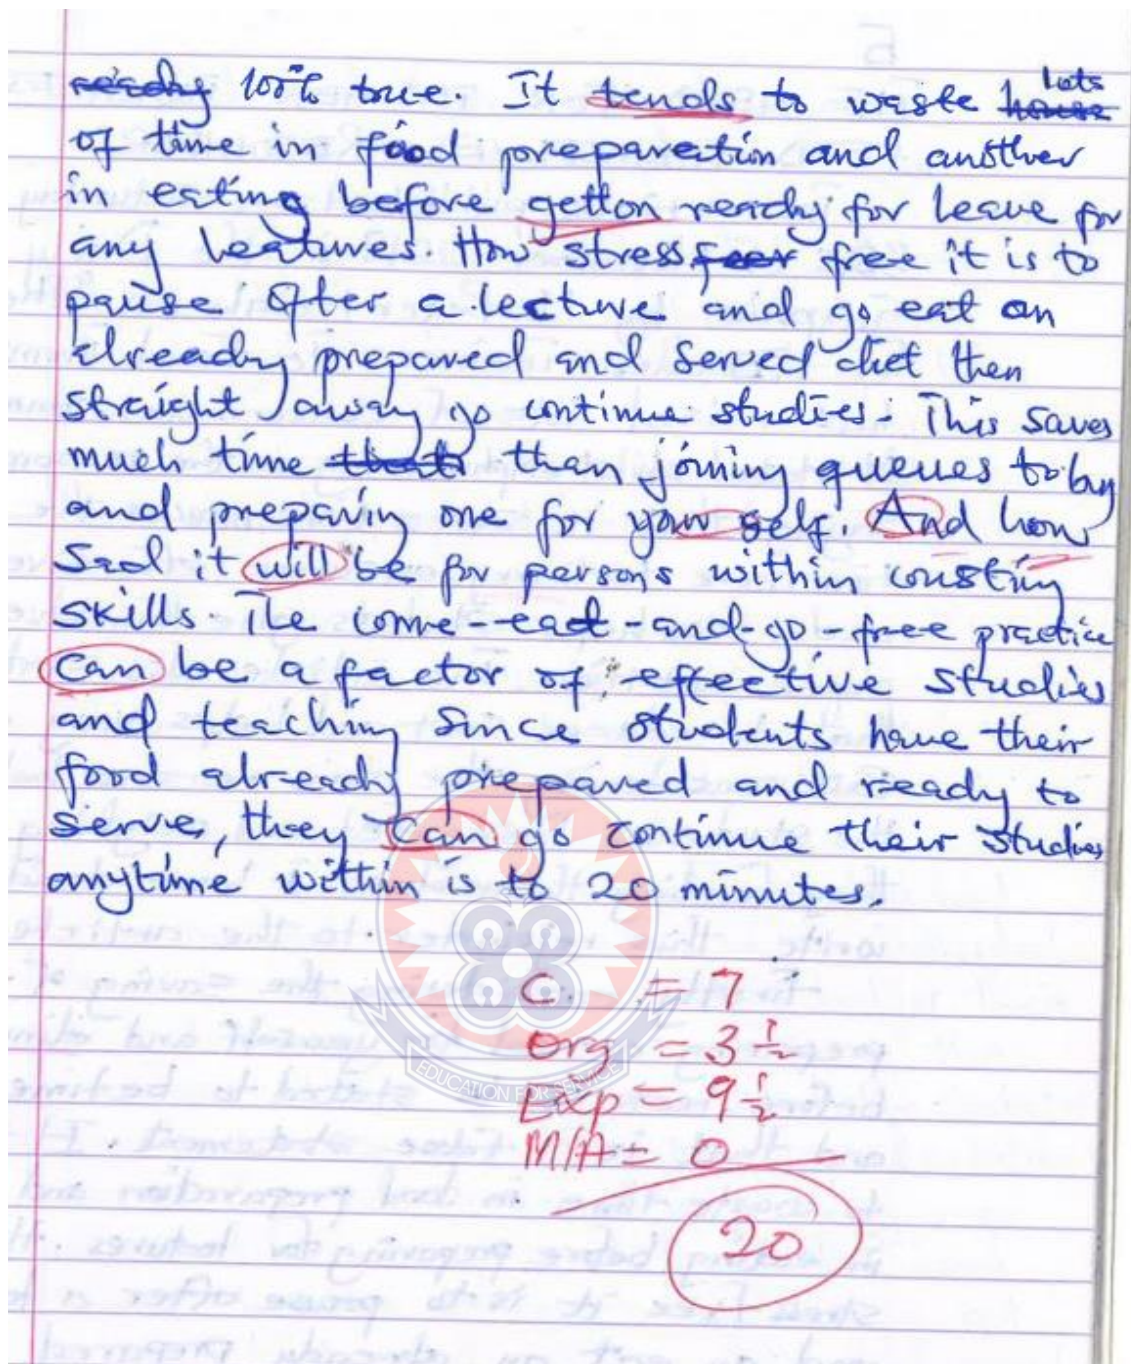 ready 100% true. It tends to waste house lots
of time in food preparation and another
in eating before getton ready for leave for
any leatures. How stress free it is to
pause after a lecture and go eat an
already prepared and served diet then
straight away go continue studies. This saves
much time than joining queues to buy
and preparing one for your self. And how
sad it will be for persons within cousting
skills. The come-eat-and-go-free practice
can be a factor of effective studies
and teaching since students have their
food already prepared and ready to
serve, they can go continue their studies
anytime within is to 20 minutes.
C = 7
Org = 3 1/2
Exp = 9 1/2
M/A = 0
20
EDUCATION FOR SERVICE